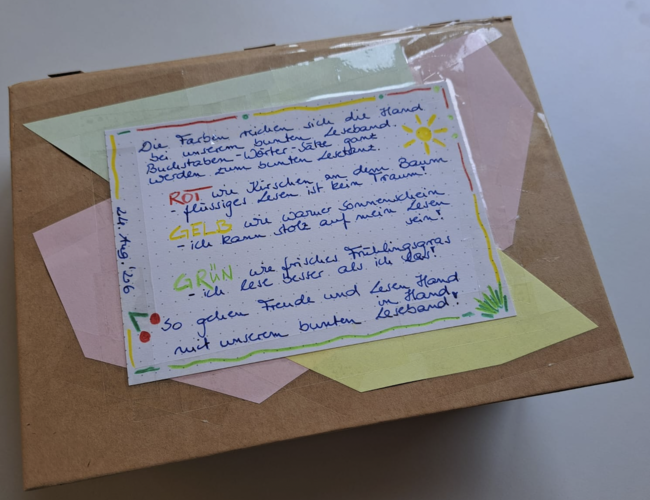 Die Farben reichen sich die Hand
bei unserem bunten Leseband.
Buchstaben-Wörter-Sätze ganz
werden zum bunten Lesetanz.
ROT wie Kirschen an dem Baum
- flüssiges Lesen ist kein Traum!
GELB wie warmer Sonnenschein
- ich kann stolz auf mein Lesen
sein!
GRÜN wie frisches Frühlingsgras
- ich lese besser als ich las!
So gehen Freude und Lesen Hand
in Hand,
mit unserem bunten Leseband.
24. Aug. '26